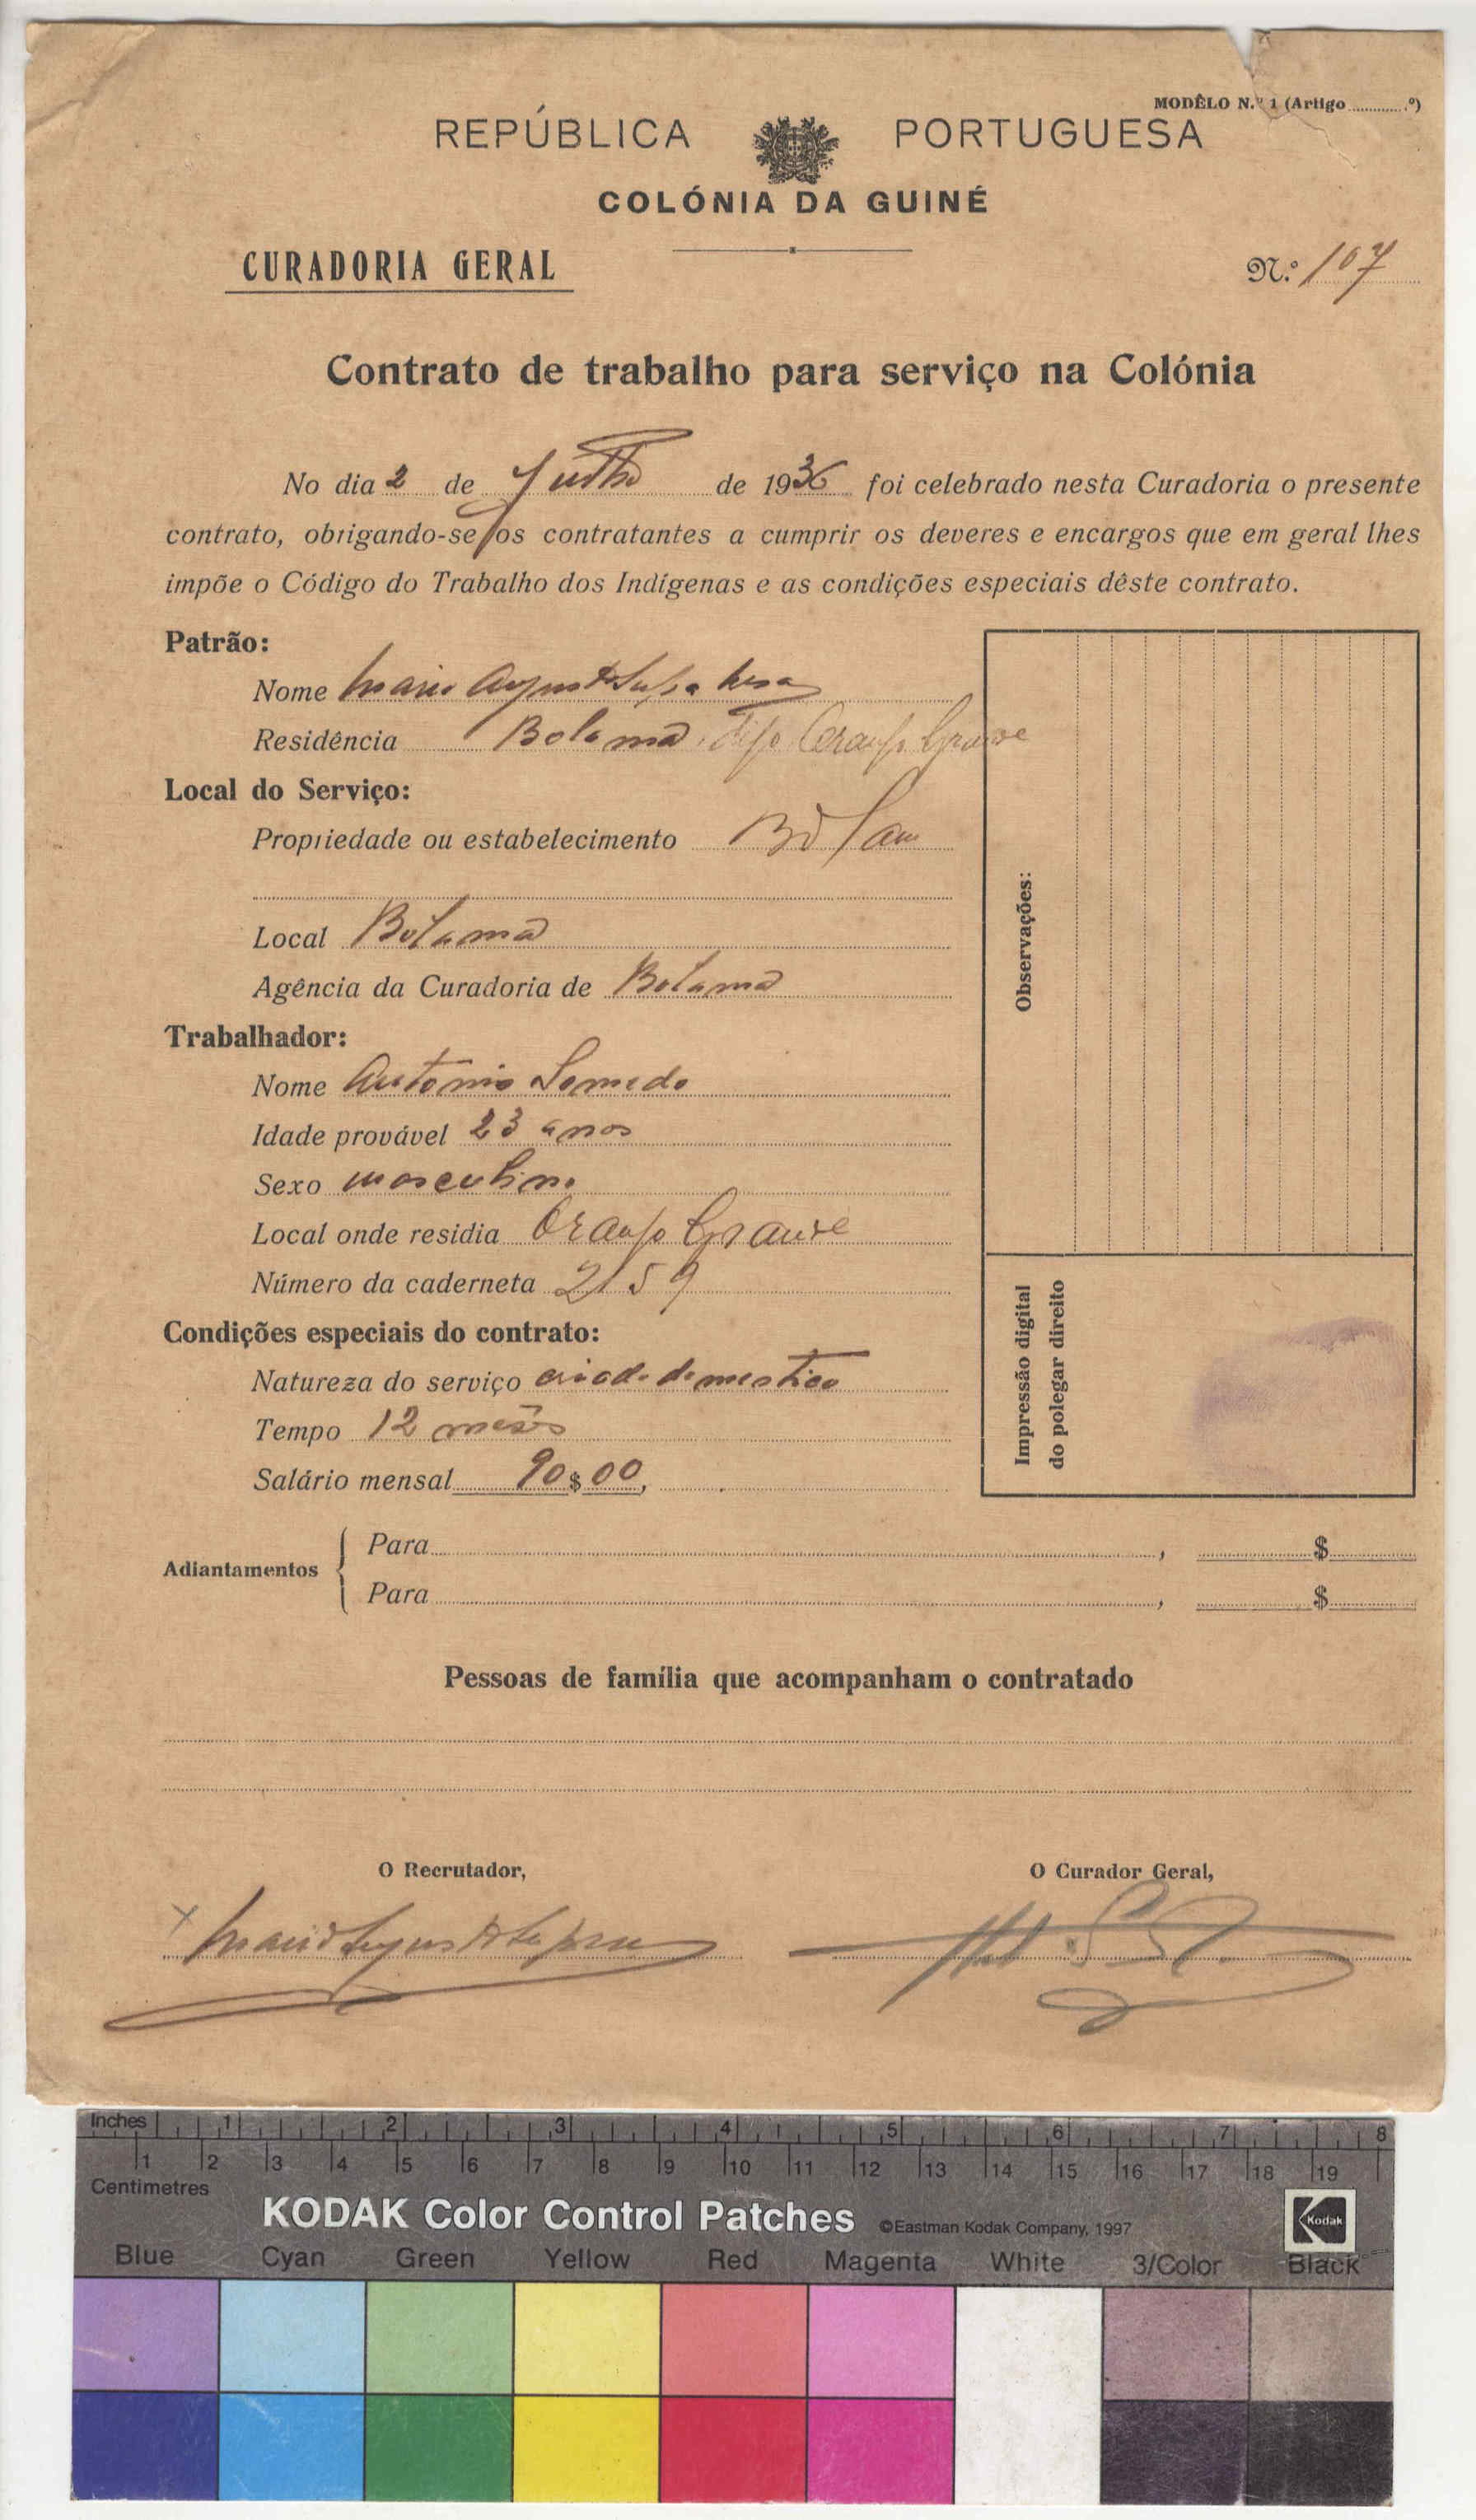 MODÊLO N.º 1 (Artigo ............º)
REPÚBLICA PORTUGUESA
COLÓNIA DA GUINÉ
CURADORIA GERAL
N.º 107
Contrato de trabalho para serviço na Colónia
No dia 2 de Julho de 1936 foi celebrado nesta Curadoria o presente
contrato, obrigando-se os contratantes a cumprir os deveres e encargos que em geral lhes
impõe o Código do Trabalho dos Indígenas e as condições especiais dêste contrato.
Patrão:
Nome Mario Augusto
Residência Bolama
Local do Serviço:
Propriedade ou estabelecimento
Local Bolama
Agência da Curadoria de Bolama
Trabalhador:
Nome Antonio Semedo
Idade provável 23 anos
Sexo masculino
Local onde residia Orango Grande
Número da caderneta 2159
Condições especiais do contrato:
Natureza do serviço criado domestico
Tempo 12 mêses
Salário mensal 90$00,
Observações:
Impressão digital
do polegar direito
Adiantamentos
Para , $
Para , $
Pessoas de família que acompanham o contratado
O Recrutador,
O Curador Geral,
Mario Augusto
Inches 1 2 3 4 5 6 7 8
1 2 3 4 5 6 7 8 9 10 11 12 13 14 15 16 17 18 19
Centimetres
KODAK Color Control Patches ©Eastman Kodak Company, 1997
Kodak
Blue Cyan Green Yellow Red Magenta White 3/Color Black